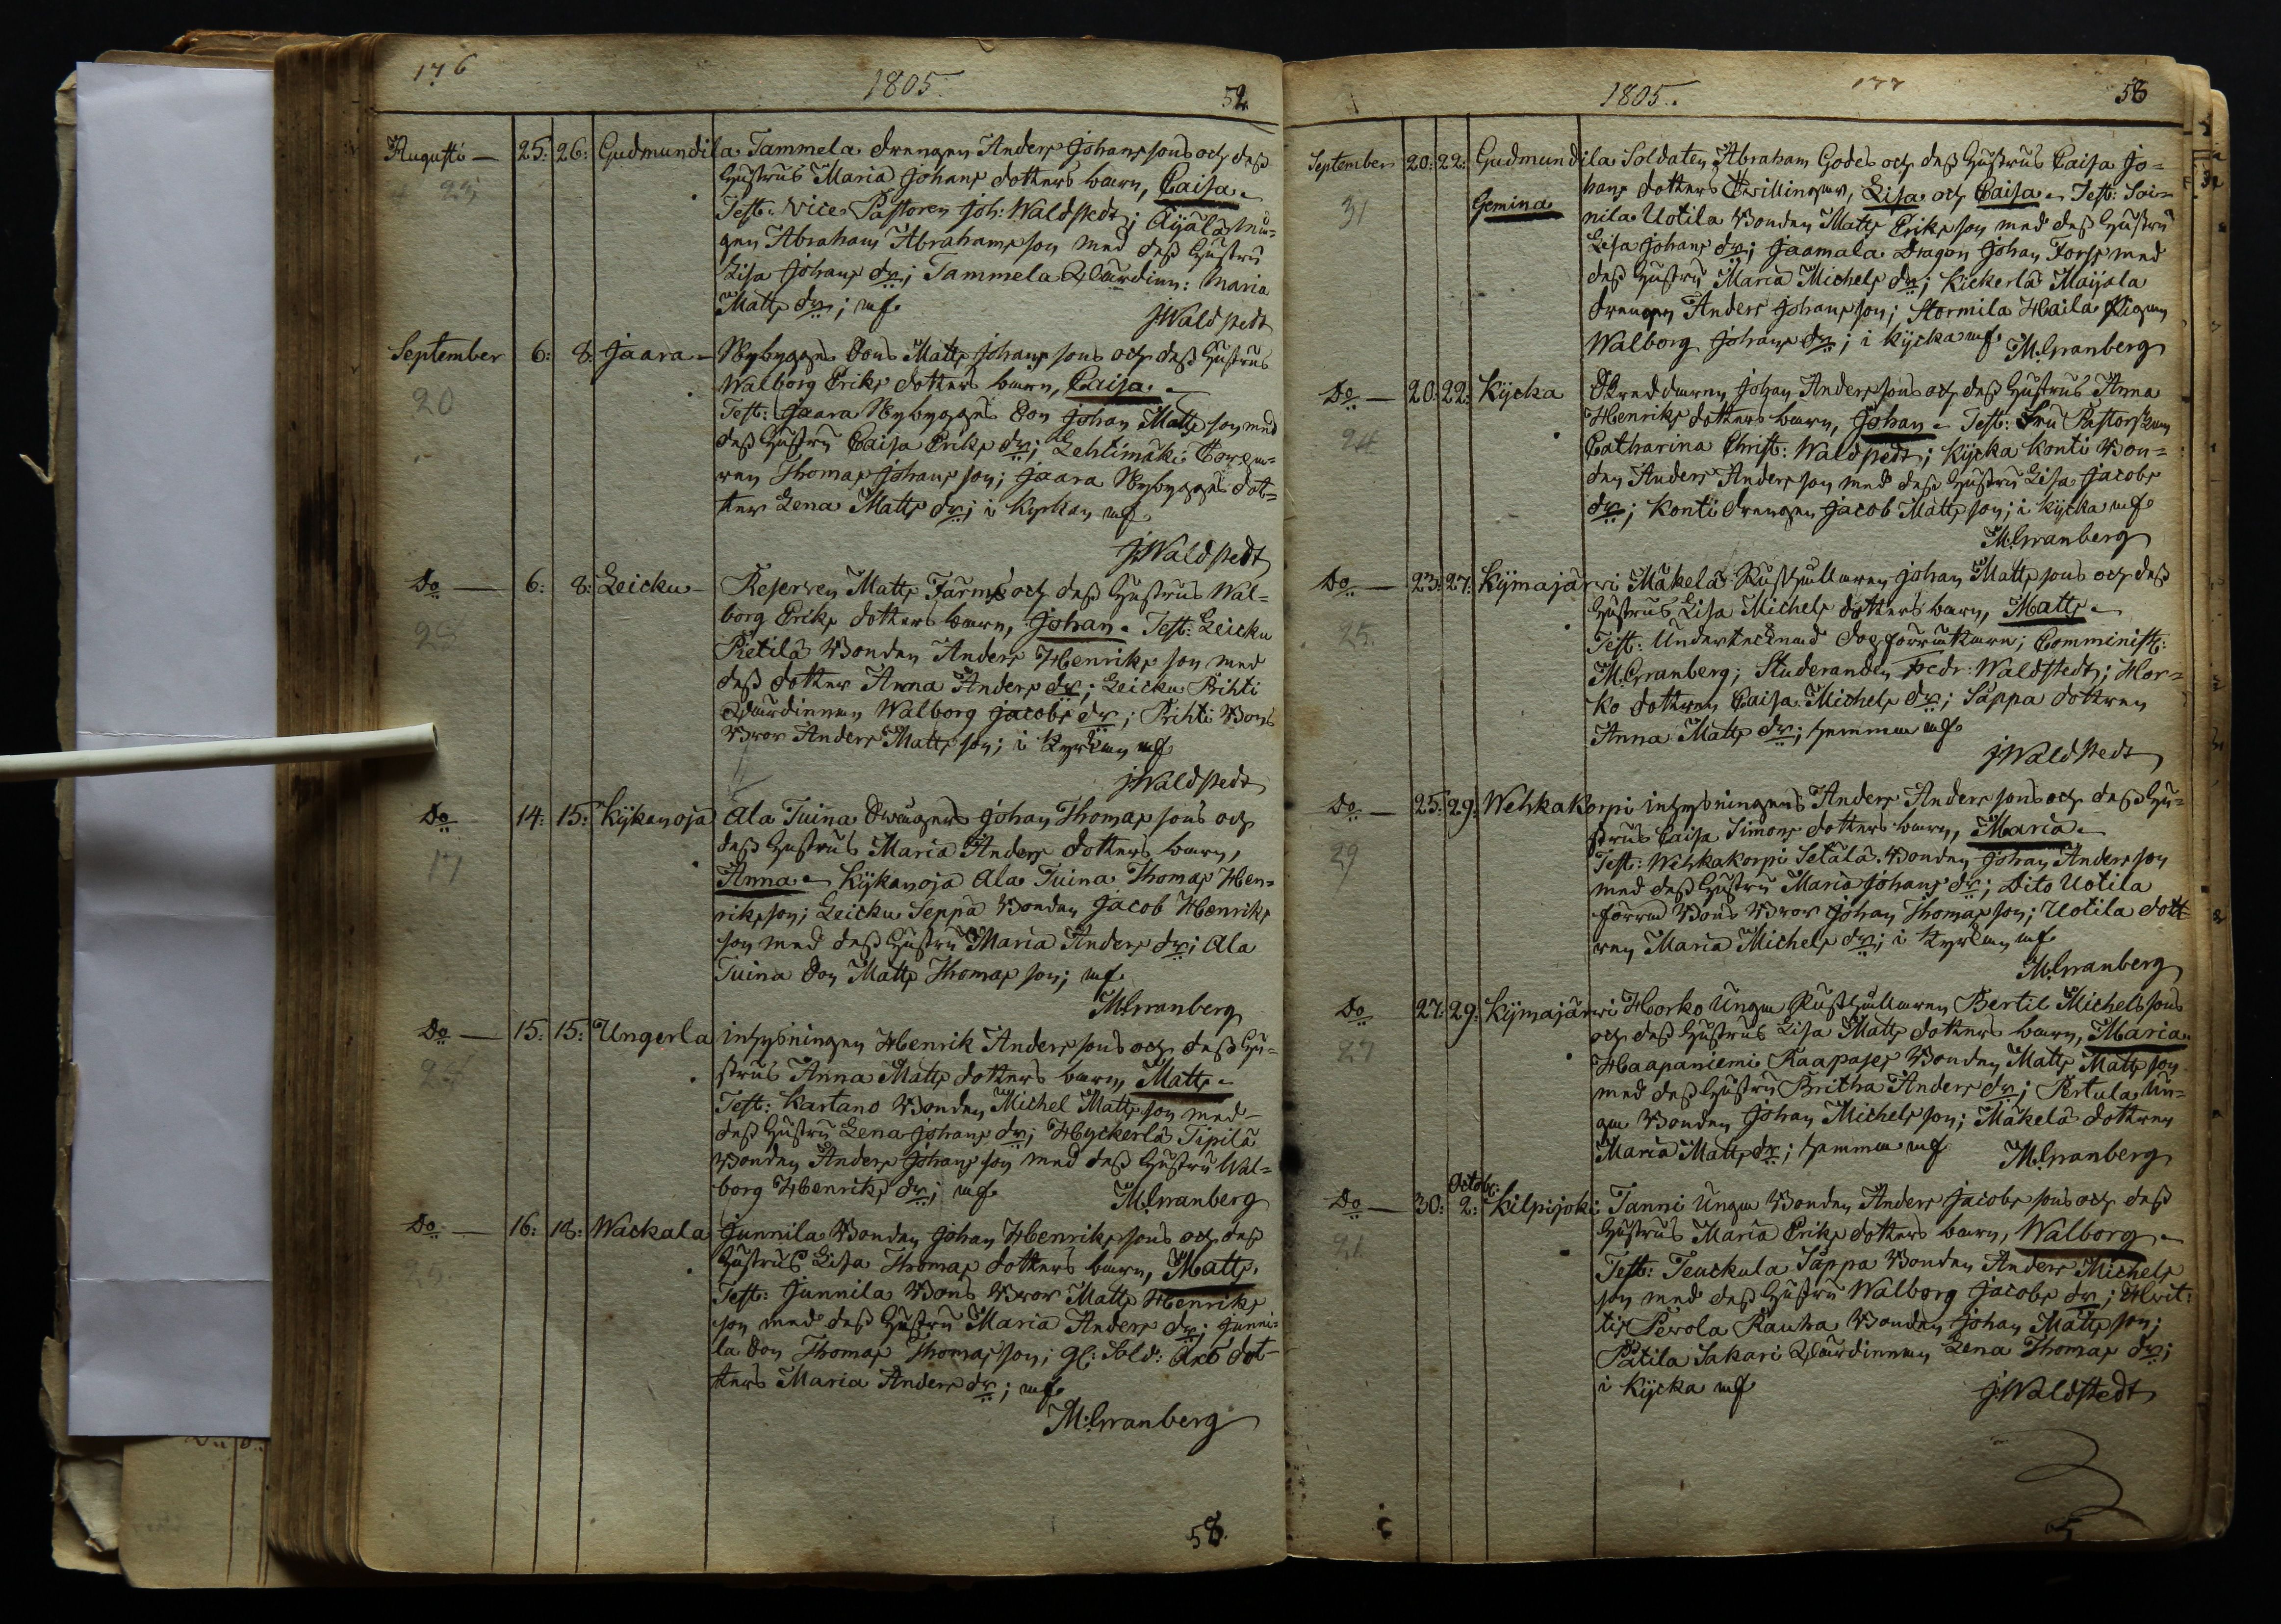 176
1805.
52
Augusti — 25: 26: Gudmundila Tammela drengen Anders Johans sons och dess
23 hustrus Maria Johans dotters barn, Caisa.
Test: Vice Pastoren Joh: Waldstedt; Äijälä
gen Abraham Abrahams son med dess hustru
Lisa Johans dr; Tammela Värdinn: Maria
Matts dr; mf.
JWaldstedt
September 6: 8: Jaara — Nybygges Sons Matts Johans sons och dess hustrus
20 Walborg Eriks dotters barn, Caisa.
Test: Jaara Nybygges Son Johan Matts son med
dess hustru Caisa Eriks dr; Lehtimäki
ren Thomas Johans son; Jaara Nybygges dot=
ter Lena Matts dr; i Kyrkan mf.
JWaldstedt
Do — 6: 8: Leicku — Reserven Matts Färms och dess hustrus Wal=
28 borg Eriks dotters barn, Johan. Test: Leicku
Pietilä Bonden Anders Henriks son med
dess dotter Anna Anders dr; Leicku Prihti
Värdinnan Walborg Jacobs dr; Prihti Bons
Bror Anders Matts son; i Kyrkan mf.
JWaldstedt
Do 14: 15: Kijkanoja Ala Tuina Drengens Johan Thomas sons och
17 dess hustrus Maria Anders dotters barn,
Anna. Kijkanoja Ala Tuina Thomas Hen=
riks son; Leicku Seppä Bonden Jacob Henriks
son med dess hustru Maria Anders dr; Ala
Tuina Son Matts Thomas son; mf.
M:Granberg
Do — 15: 15: Ungerla inhysningen Henrik Anders sons och dess hu=
strus Anna Matts dotters barn, Matts.
Test: Kartano Bonden Michel Matts son med
dess hustru Lena Johans dr; Hyckerlä Tipilä
Bonden Anders Johans son med dess hustru Wal=
borg Henriks dr; mf.
M:Granberg
Do — 16: 18: Wackala Junnila Bonden Johan Henriks sons och dess
hustrus Lisa Thomas dotters barn, Matts.
Test: Junnila Bons Bror Matts Henriks
son med dess hustru Maria Anders dr; Junni=
la Son Thomas Thomas son; gl: Sold: dot=
ters Maria Anders dr; mf.
M:Granberg
58.
1805.
177
53
September 20: 22: Gudmundila Soldaten Abraham Godes och dess hustrus Caisa Jo=
31 Gemina hans dotters Tvillingar, Lisa och Caisa. Test: Soi=
nila Uotila Bonden Matts Eriks son med dess hustru
Lisa Johans dr; Jaamala Dragon Johan Forss med
dess hustru Maria Michels dr; Kickerlä Maijala
drengen Anders Johans son; Stormila Haila Pigan
Walborg Johans dr; i Kijcka mf.
M:Granberg
Do — 20: 22: Kijcka Skreddaren Johan Anders sons och dess hustrus Anna
24 Henriks dotters barn, Johan. Test: Fru Pastorskan
Catharina Christ: Waldstedt; Kijcka Konti Bon=
den Anders Anders son med dess hustru Lisa Jacobs
dr; Konti drengen Jacob Matts son; i Kijcka mf.
M:Granberg
Do — 23: 27: Kijmajärwi Mäkelä Rusthållaren Johan Matts sons och dess
25. hustrus Lisa Michels dotters barn, Matts.
Test: Undertecknad döpförrättare; Comminist:
M.Granberg; Studeranden Fredr: Waldstedt; Hor=
ko dottren Caisa Michels dr; Säppä dottren
Anna Matts dr; hemma mf.
JWaldstedt
Do — 25: 29: Wehkakorpi inhysningens Anders Anders sons och dess hu=
29 strus Caisa Simons dotters barn, Maria.
Test: Wehkakorpi Setälä Bonden Johan Anders son
med dess hustru Maria Johans dr; Dito Uotila
förra Bons Bror Johan Thomas son; Uotila dott=
ren Maria Michels dr; i Kyrkan mf.
M:Granberg
Do 27: 29: Kijmajärwi Horko Unga Rusthållaren Bertil Michels sons
27 och dess hustrus Lisa Matts dotters barn, Maria.
Haapaniemi Raapases Bonden Matts Matts son
med dess hustru Britha Anders dr; Pertula Un=
ga Bonden Johan Michels son; Mäkelä dottren
Maria Matts dr; hemma mf.
M:Granberg
Octob:
Do — 30: 2: Kilpijoki Tanni Unga Bonden Anders Jacobs sons och dess
21 hustrus Maria Eriks dotters barn, Walborg.
Test: Teuckula Säppä Bonden Anders Michels
son med dess hustru Walborg Jacobs dr; Hwit:
tis Perola Rauha Bonden Johan Matts son;
Pätilä Sakari Värdinnan Lena Thomas dr;
i Kijcka mf.
JWaldstedt